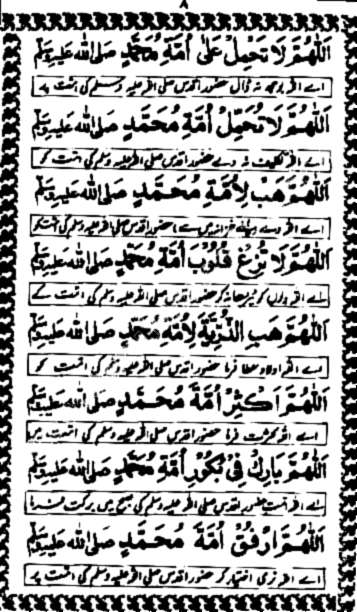 ۸
اَللّٰهُمَّ لَا تَحْمِلْ عَلٰى اُمَّةِ مُحَمَّدٍ صَلَى الله عَلَيْهِ وَسَلَّمَ
اے اللہ بوجھ نہ ڈال حضور اقدس صلی اللہ علیہ وسلم کی امت پر
اَللّٰهُمَّ لَا تُحَمِّلْ اُمَّةَ مُحَمَّدٍ صَلَى الله عَلَيْهِ وَسَلَّمَ
اے اللہ تکلیف نہ دے حضور اقدس صلی اللہ علیہ وسلم کی امت کو
اَللّٰهُمَّ هَبْ لِاُمَّةِ مُحَمَّدٍ صَلَى الله عَلَيْهِ وَسَلَّمَ
اے اللہ دے اپنے خزانہ میں سے حضور اقدس صلی اللہ علیہ وسلم کی امت کو
اَللّٰهُمَّ لَا تُزِغْ قُلُوْبَ اُمَّةِ مُحَمَّدٍ صَلَى الله عَلَيْهِ وَسَلَّمَ
اے اللہ دلوں کو ٹیڑھا نہ کر حضور اقدس صلی اللہ علیہ وسلم کی امت کے
اَللّٰهُمَّ هَبِ الذُّرِّيَّةَ لِاُمَّةِ مُحَمَّدٍ صَلَى الله عَلَيْهِ وَسَلَّمَ
اے اللہ اولاد عطا فرما حضور اقدس صلی اللہ علیہ وسلم کی امت کو
اَللّٰهُمَّ اَكْثِرْ اُمَّةَ مُحَمَّدٍ صَلَى الله عَلَيْهِ وَسَلَّمَ
اے اللہ کثرت فرما حضور اقدس صلی اللہ علیہ وسلم کی امت میں
اَللّٰهُمَّ بَارِكْ فِيْ بُكُوْرِ اُمَّةِ مُحَمَّدٍ صَلَى الله عَلَيْهِ وَسَلَّمَ
اے اللہ حضور اقدس صلی اللہ علیہ وسلم کی صبح میں برکت فرما
اَللّٰهُمَّ ارْفُقْ اُمَّةَ مُحَمَّدٍ صَلَى الله عَلَيْهِ وَسَلَّمَ
اے اللہ نرمی اختیار کر حضور اقدس صلی اللہ علیہ وسلم کی امت پر